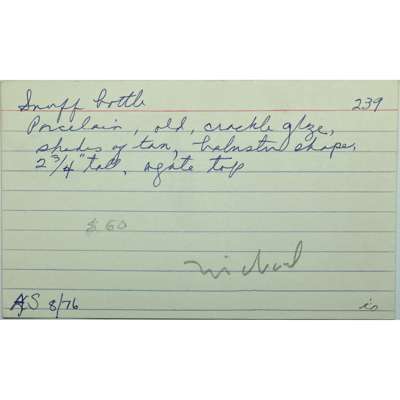 Snuff bottle 239
Porcelain, old, crackle glze,
shades of tan, balustre shape,
2 3/4" tall, agate top
$60
Michael
S 8/76